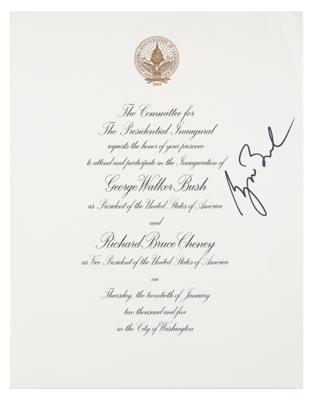 2005
The Committee for
The Presidential Inaugural
requests the honor of your presence
to attend and participate in the Inauguration of
George Walker Bush
as President of the United States of America
and
Richard Bruce Cheney
as Vice President of the United States of America
on
Thursday, the twentieth of January
two thousand and five
in the City of Washington